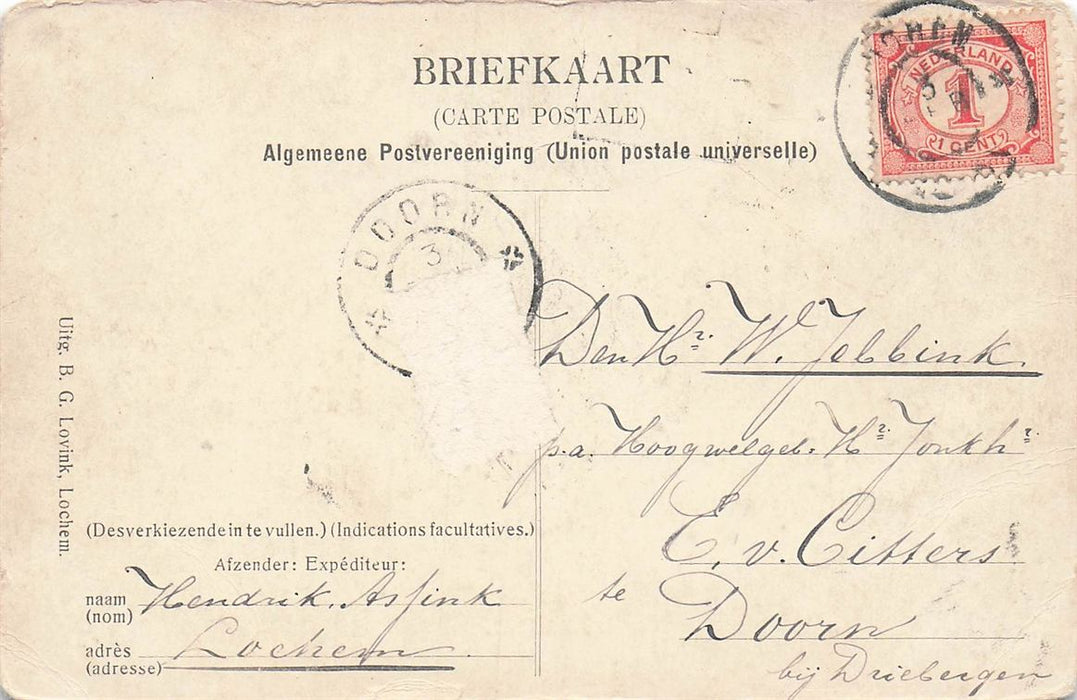 BRIEFKAART
(CARTE POSTALE)
Algemeene Postvereeniging (Union postale universelle)
NEDERLAND
1
1 CENT
DOORN
3
Den Hr. W. Jebbink.
p.a. Hoogwelgeb. Hr. Jonkhr.
E. v. Citters
te Doorn
bij Driebergen
Uitg. B. G. Lovink, Lochem.
(Desverkiezende in te vullen.) (Indications facultatives.)
Afzender: Expéditeur:
naam (nom) Hendrik. Assink
adrès (adresse) Lochem